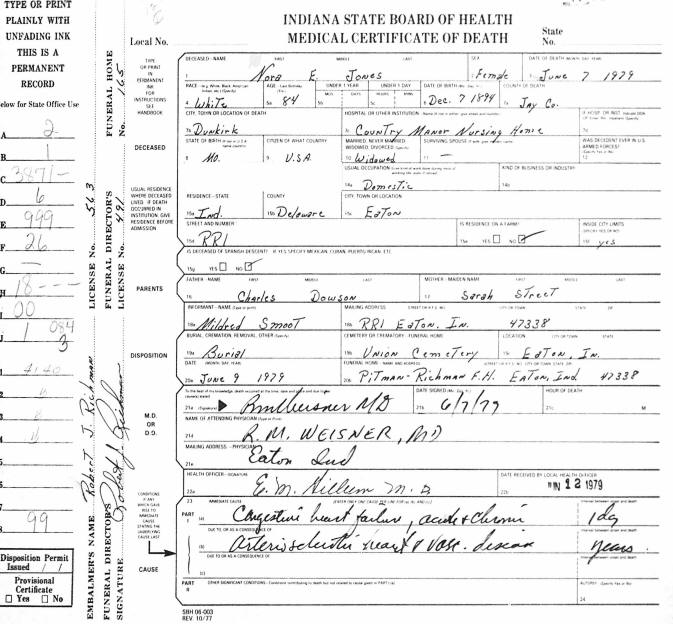 TYPE OR PRINT
PLAINLY WITH
UNFADING INK
THIS IS A
PERMANENT
RECORD
Below for State Office Use
A 2
B 1
C 3871-
D 6
E 999
F 26
G -
H 18 ---
I 00
J 1 084
3
1 4140
99
Disposition Permit
Issued / /
Provisional
Certificate
☐ Yes ☐ No
EMBALMER'S NAME Robert J. Richman LICENSE No. 563
FUNERAL DIRECTOR'S SIGNATURE Robert J. Richman
FUNERAL DIRECTOR'S LICENSE No. 491
FUNERAL HOME No. 165
INDIANA STATE BOARD OF HEALTH
MEDICAL CERTIFICATE OF DEATH
Local No.
State No.
TYPE
OR PRINT
IN
PERMANENT
INK
FOR
INSTRUCTIONS
SEE
HANDBOOK
DECEASED
USUAL RESIDENCE
WHERE DECEASED
LIVED. IF DEATH
OCCURRED IN
INSTITUTION, GIVE
RESIDENCE BEFORE
ADMISSION
PARENTS
DISPOSITION
M.D.
OR
D.O.
CONDITIONS
IF ANY
WHICH GAVE
RISE TO
IMMEDIATE
CAUSE
STATING THE
UNDERLYING
CAUSE LAST
CAUSE
DECEASED-NAME FIRST MIDDLE LAST SEX DATE OF DEATH (MONTH, DAY, YEAR)
1 Nora E. Jones 2 Female 3 June 7 1979
RACE AGE UNDER 1 YEAR UNDER 1 DAY DATE OF BIRTH COUNTY OF DEATH
4 White 5a 84 5b 5c 6 Dec. 7 1894 7a Jay Co.
CITY, TOWN OR LOCATION OF DEATH HOSPITAL OR OTHER INSTITUTION
7b Dunkirk 7c Country Manor Nursing Home 7d
STATE OF BIRTH CITIZEN OF WHAT COUNTRY MARRIED, NEVER MARRIED, WIDOWED, DIVORCED SURVIVING SPOUSE WAS DECEDENT EVER IN U.S. ARMED FORCES?
8 Mo. 9 U.S.A. 10 Widowed 11 — 12
USUAL OCCUPATION KIND OF BUSINESS OR INDUSTRY
14a Domestic 14b
RESIDENCE-STATE COUNTY CITY, TOWN OR LOCATION
15a Ind. 15b Delaware 15c Eaton
STREET AND NUMBER IS RESIDENCE ON A FARM? INSIDE CITY LIMITS
15d RR1 15e YES ☐ NO ☑ 15f yes
IS DECEASED OF SPANISH DESCENT? IF YES SPECIFY MEXICAN, CUBAN, PUERTO RICAN, ETC.
15g YES ☐ NO ☑
FATHER-NAME FIRST MIDDLE LAST MOTHER-MAIDEN NAME FIRST MIDDLE LAST
16 Charles Dowson 17 Sarah Street
INFORMANT-NAME MAILING ADDRESS
18a Mildred Smoot 18b RR1 Eaton, In. 47338
BURIAL, CREMATION, REMOVAL, OTHER CEMETERY OR CREMATORY-FUNERAL HOME LOCATION CITY OR TOWN STATE
19a Burial 19b Union Cemetery 19c Eaton, In.
DATE (MONTH, DAY, YEAR) FUNERAL HOME-NAME AND ADDRESS
20a June 9 1979 20b Pitman-Richman F.H. Eaton, Ind 47338
To the best of my knowledge, death occurred at the time, date and place and due to the cause(s) stated DATE SIGNED HOUR OF DEATH
21a (Signature) RM Weisner MD 21b 6/7/79 21c M
NAME OF ATTENDING PHYSICIAN
21d R. M. WEISNER, MD
MAILING ADDRESS-PHYSICIAN
21e Eaton Ind
HEALTH OFFICER-SIGNATURE DATE RECEIVED BY LOCAL HEALTH OFFICER
22a E. M. Hillum M.D. 22b JUN 12 1979
23 IMMEDIATE CAUSE (ENTER ONLY ONE CAUSE PER LINE FOR (a), (b), AND (c)) Interval between onset and death
PART I (a) Congestive heart failure, acute & chronic 1 day
DUE TO, OR AS A CONSEQUENCE OF Interval between onset and death
(b) Arteriosclerotic heart & vasc. disease years
DUE TO, OR AS A CONSEQUENCE OF Interval between onset and death
(c)
PART II OTHER SIGNIFICANT CONDITIONS-Conditions contributing to death but not related to cause given in PART I (a) AUTOPSY
24
SBH 06-003
REV. 10/77